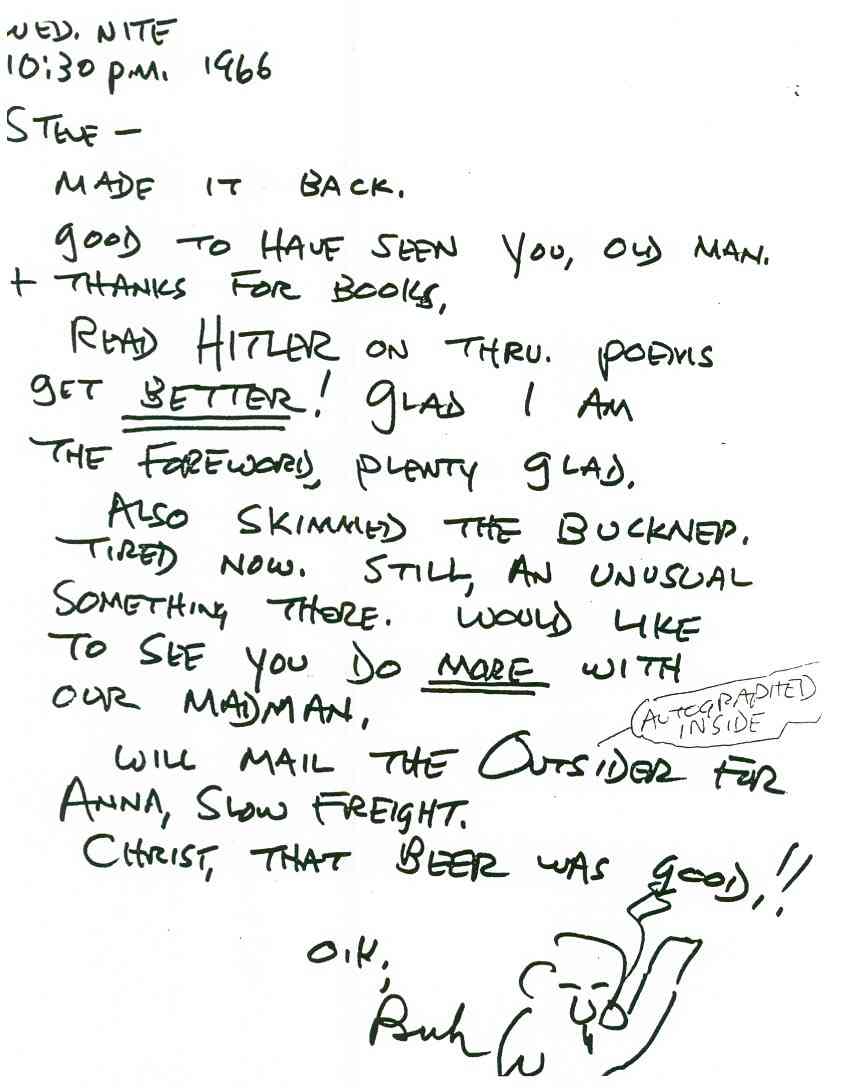 WED. NITE
10:30 p.m. 1966
STEVE —
MADE IT BACK.
good TO HAVE SEEN YOU, OLD MAN.
+ THANKS FOR BOOKS,
READ HITLER ON THRU. POEMS
GET BETTER! GLAD I AM
THE FOREWORD, PLENTY GLAD.
ALSO SKIMMED THE BUCKNER.
TIRED NOW. STILL, AN UNUSUAL
SOMETHING THERE. WOULD LIKE
TO SEE YOU DO MORE WITH
OUR MADMAN.
AUTOGRAPHTED
INSIDE
WILL MAIL THE OUTSIDER FOR
ANNA, SLOW FREIGHT.
CHRIST, THAT BEER WAS good,!!
O.K,
Buk